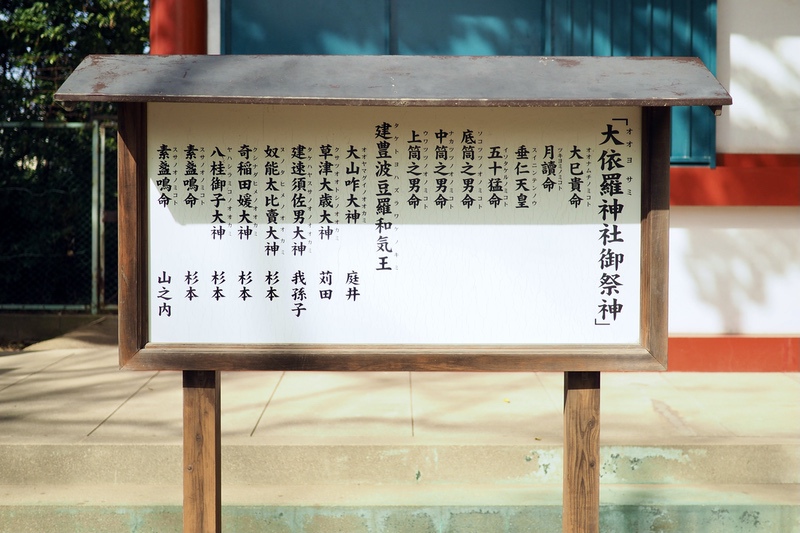 「大依羅神社御祭神」
大巳貴命
月讀命
垂仁天皇
五十猛命
底筒之男命
中筒之男命
上筒之男命
建豊波豆羅和気王
大山咋大神 庭井
草津大歳大神 苅田
建速須佐男大神 我孫子
奴能太比賣大神 杉本
奇稲田媛大神 杉本
八桂御子大神 杉本
素盞鳴命 杉本
素盞鳴命 山之内